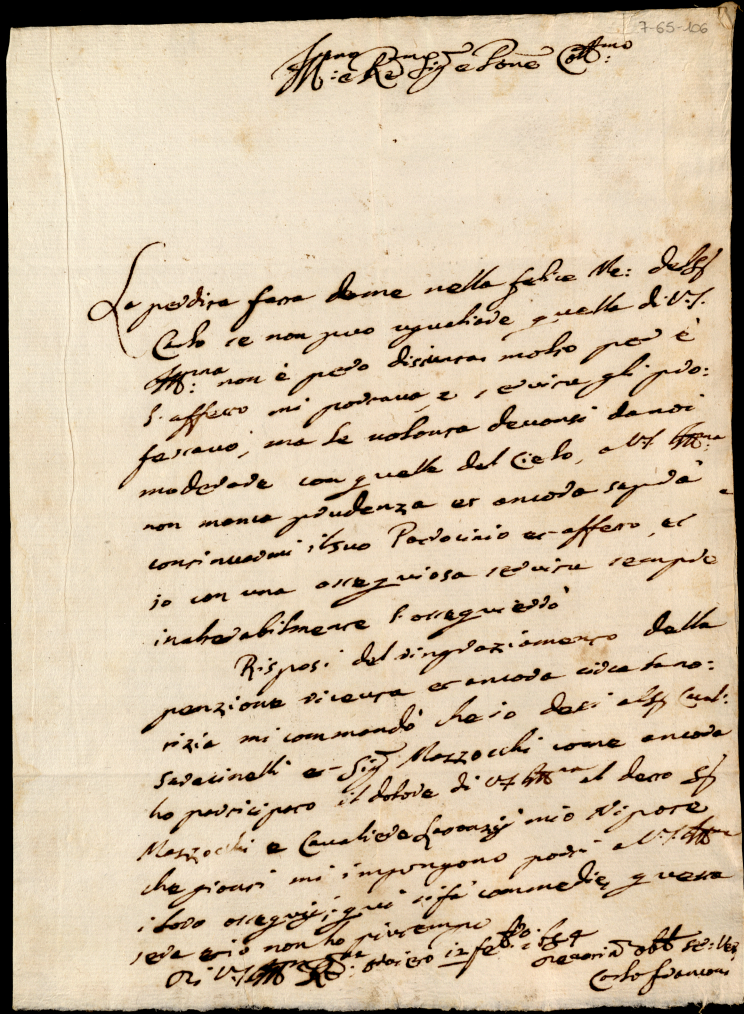 7-65-106
Ill.mo e R.mo Sig.re e P.one Col.mo
La perdita fatta da me nella felice Me: del Sig.r
Carlo se non può uguagliare quella di V.S.
Ill.ma non è però dissimile, molto per è
l'affetto mi portava, e servitù gli pro:
fessavo, ma le volontà devonsi da noi
moderare con quelle del Cielo, a V.S. Ill.ma
non manca prudenza et ancora saprà
continuarmi il suo Patrocinio et affetto, et
io con una ossequiosa servitù sempre
inalterabilmente l'ossequierò
Risposi del ringraziamento della
penzione ricevuta et ancora circa la no:
tizia mi commandò che io dessi al Sig.r Caval:
Saracinelli et Sig.r Mazzocchi come ancora
ho participato il dolore di V.S. Ill.ma al detto Sig.r
Mazzocchi e Cavaliere mio Nipote
che gionti mi impongono porti a V.S. Ill.ma
i loro ossequij; qui si fà commedie, questa
sera et io non ho più tempo
Di V.S. Ill.ma R.ma Orvieto 12 feb.ro 1684
obl.mo Se: Ve:
Carlo